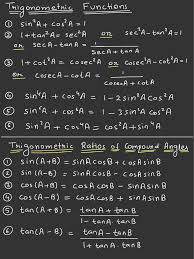 Trigonometric Functions
① sin²A + cos²A = 1
② 1+tan²A = sec²A or sec²A-tan²A=1
or secA-tanA = 1/(secA+tanA)
③ 1+cot²A = cosec²A or cosec²A-cot²A=1
or cosecA-cotA = 1/(cosecA+cotA)
④ sin⁴A + cos⁴A = 1-2sin²Acos²A
⑤ sin⁶A + cos⁶A = 1-3sin²Acos²A
⑥ sin²A + cos⁴A = cos²A + sin⁴A
Trigonometric Ratios of Compound Angles
① sin(A+B) = sinAcosB + cosAsinB
② sin(A-B) = sinAcosB - cosAsinB
③ cos(A+B) = cosAcosB - sinAsinB
④ cos(A-B) = cosAcosB + sinAsinB
⑤ tan(A+B) = (tanA+tanB)/(1-tanA tanB)
⑥ tan(A-B) = (tanA-tanB)/(1+tanA tanB)